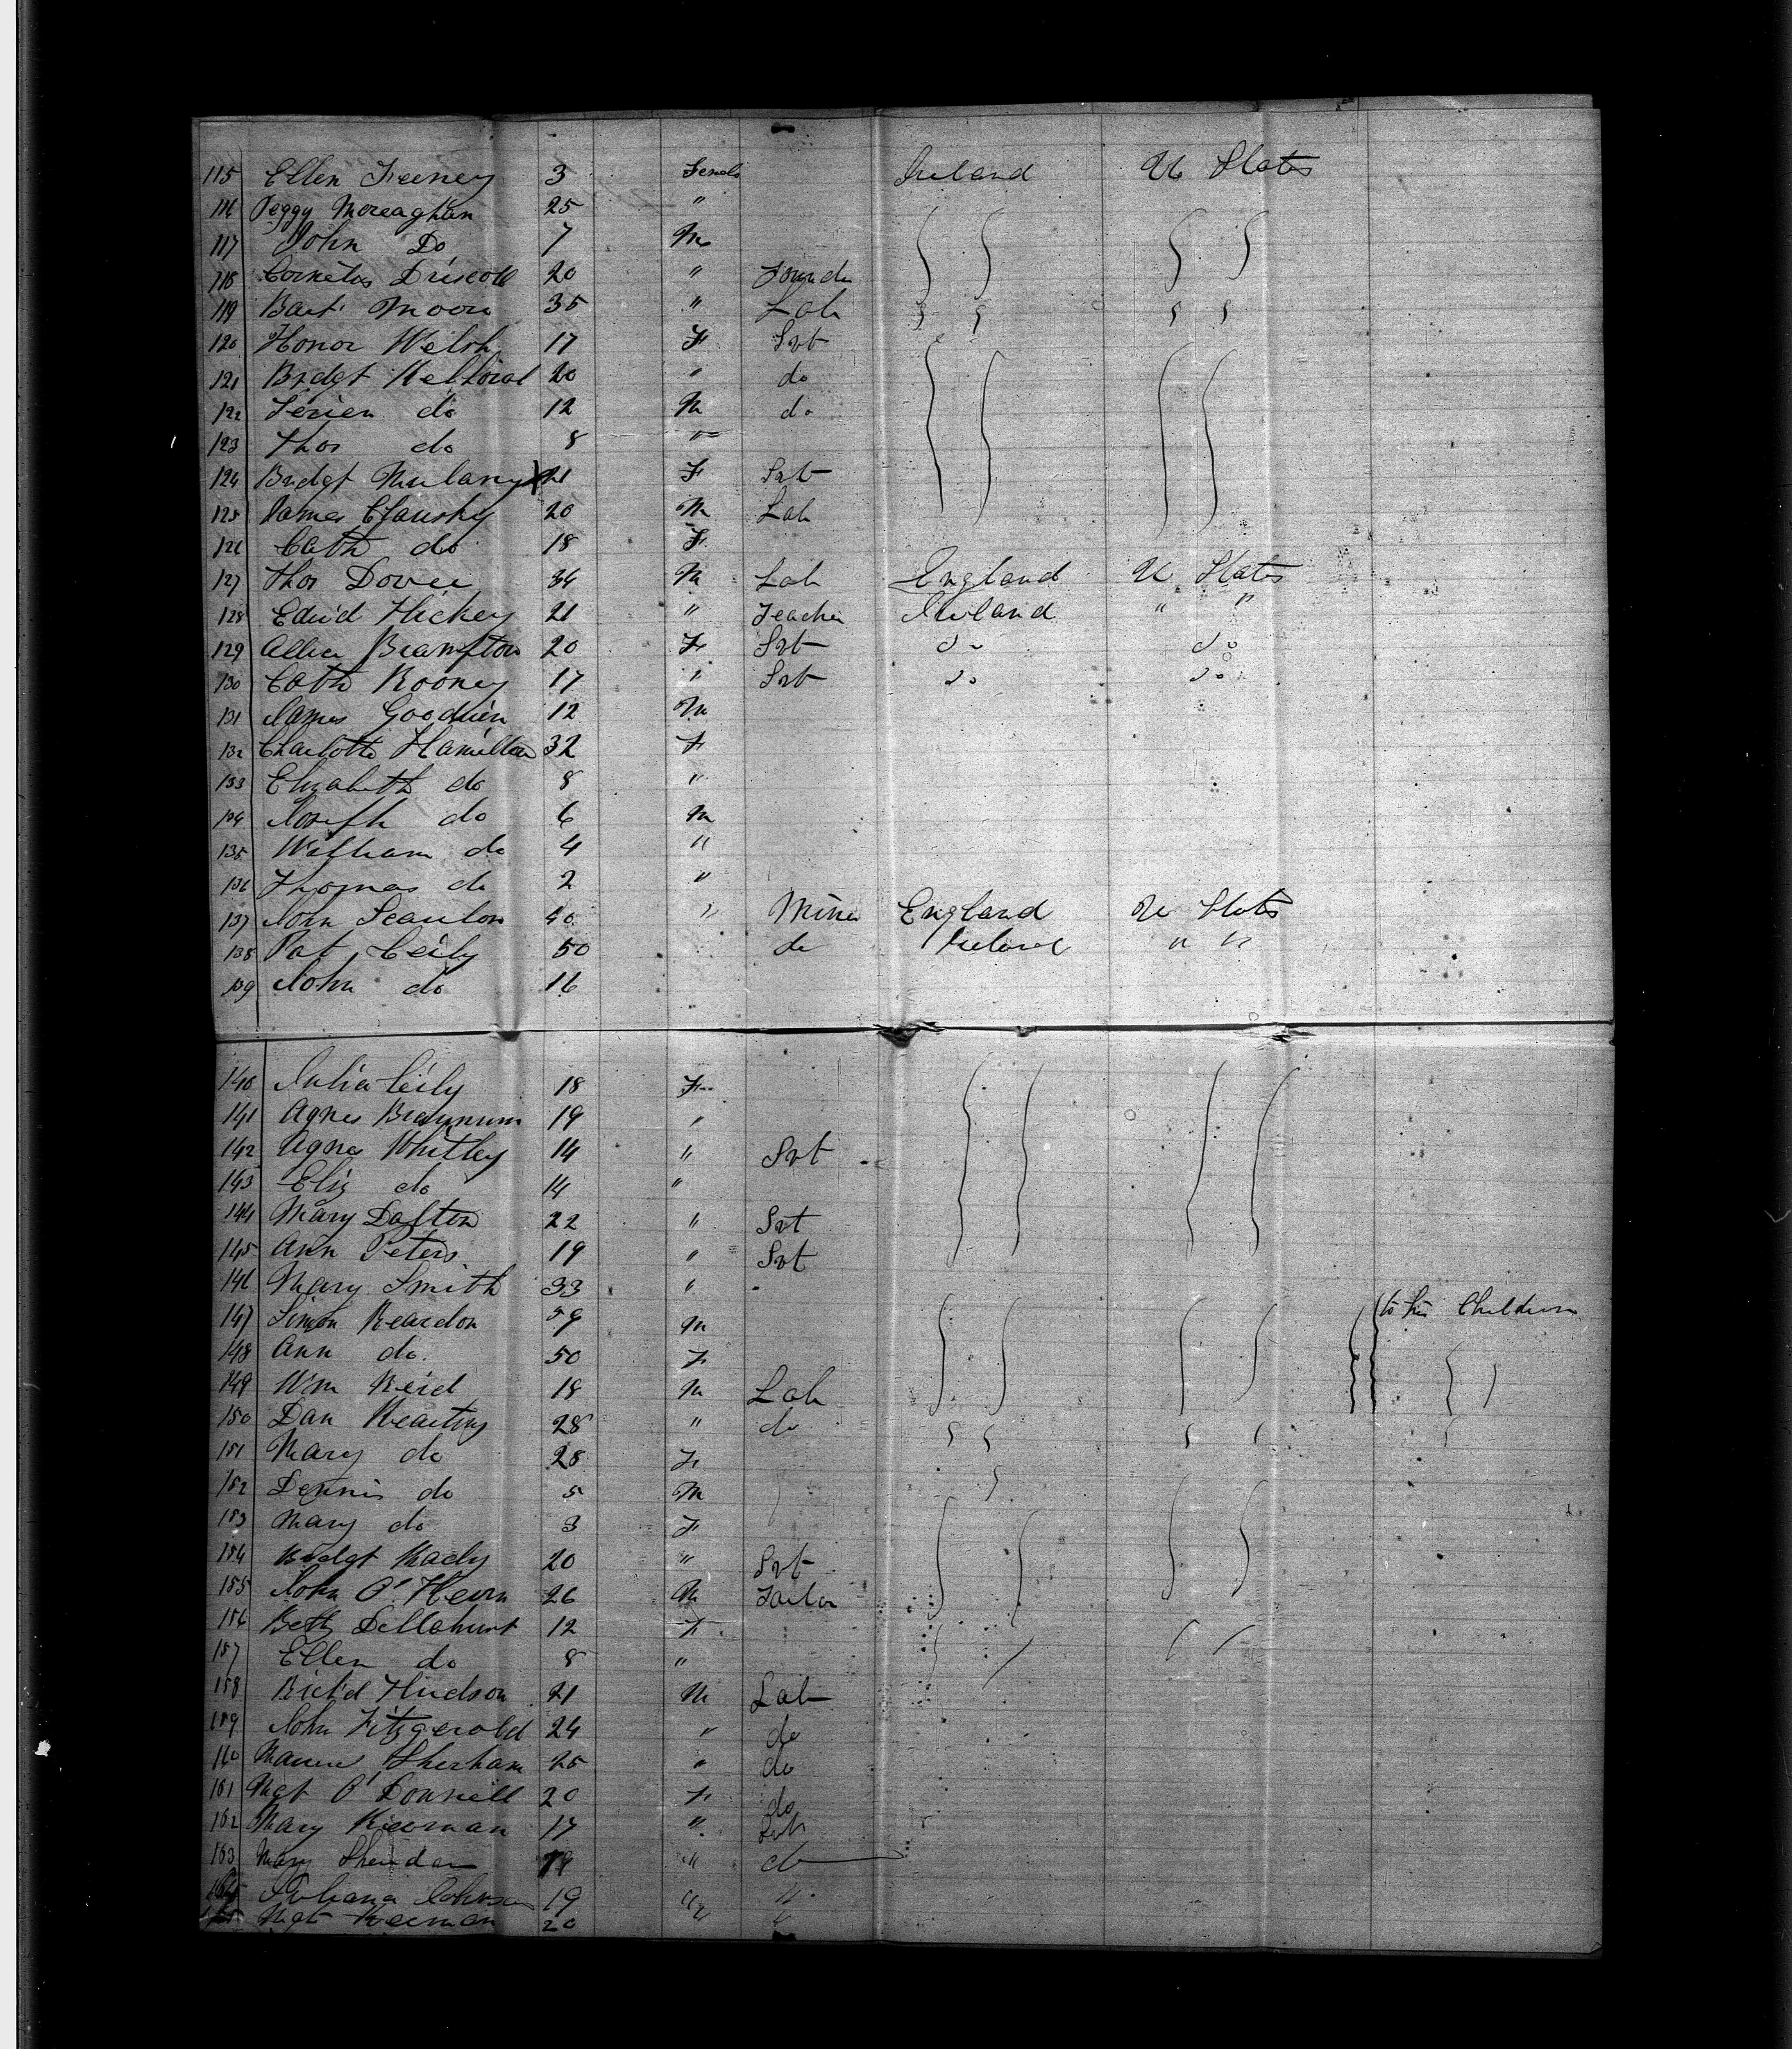 115 Ellen Feeney 3 Female Ireland U States
116 Peggy Moreaghan 25 "
117 John Do 7 M
118 Cornelos Driscoll 20 " Founder
119 Bart Moore 35 " Lab
120 Honor Welsh 17 F Svt
121 Bridgt 20 " do
122 do 12 M do
123 Thos do 8 "
124 Bridgt Mulany 21 F Svt
125 James 20 M Lab
126 Cath do 18 F
127 Thos 34 M Lab England U States
128 Edwd Hickey 21 " Teacher Ireland " "
129 20 F Svt do do
130 Cath Rooney 17 " Svt do do
131 James Goodwin 12 M
132 Charlotte Hamilton 32 F
133 Elizabeth do 8 "
134 Joseph do 6 M
135 William do 4 "
136 Thomas do 2 "
137 John Scanlon 40 " Miner England U States
138 Pat Ceily 50 do Ireland " "
139 John do 16
140 Julia Ceily 18 F
141 Agnes 19 "
142 Agnes Whitley 14 " Svt
143 Eliz do 14 "
144 Mary Dalton 22 " Svt
145 Ann Peters 19 " Svt
146 Mary Smith 33 "
147 Simon Reardon 59 M to his Children
148 Ann do 50 F
149 Wm Reid 18 M Lab
150 Dan Keating 28 " do
151 Mary do 28 F
152 Dennis do 5 M
153 Mary do 3 F
154 Bridgt 20 " Svt
155 John O' 26 M Tailor
156 Betty Dellahunt 12 F
157 Ellen do 8 "
158 Rich'd Hudson 21 M Lab
159 John Fitzgerald 24 " do
160 25 " do
161 Mgt O'Donnell 20 F do
162 Mary Kiernan 17 " Svt
163 Mary Sheridan 19 " do
164 Johnson 19 " "
165 Mgt Keernan 20 "